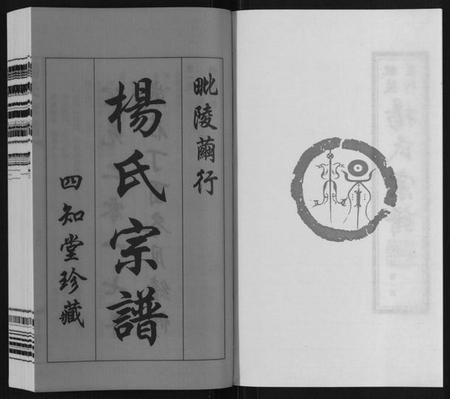 毗陵藺行
楊氏宗譜
四知堂珍藏